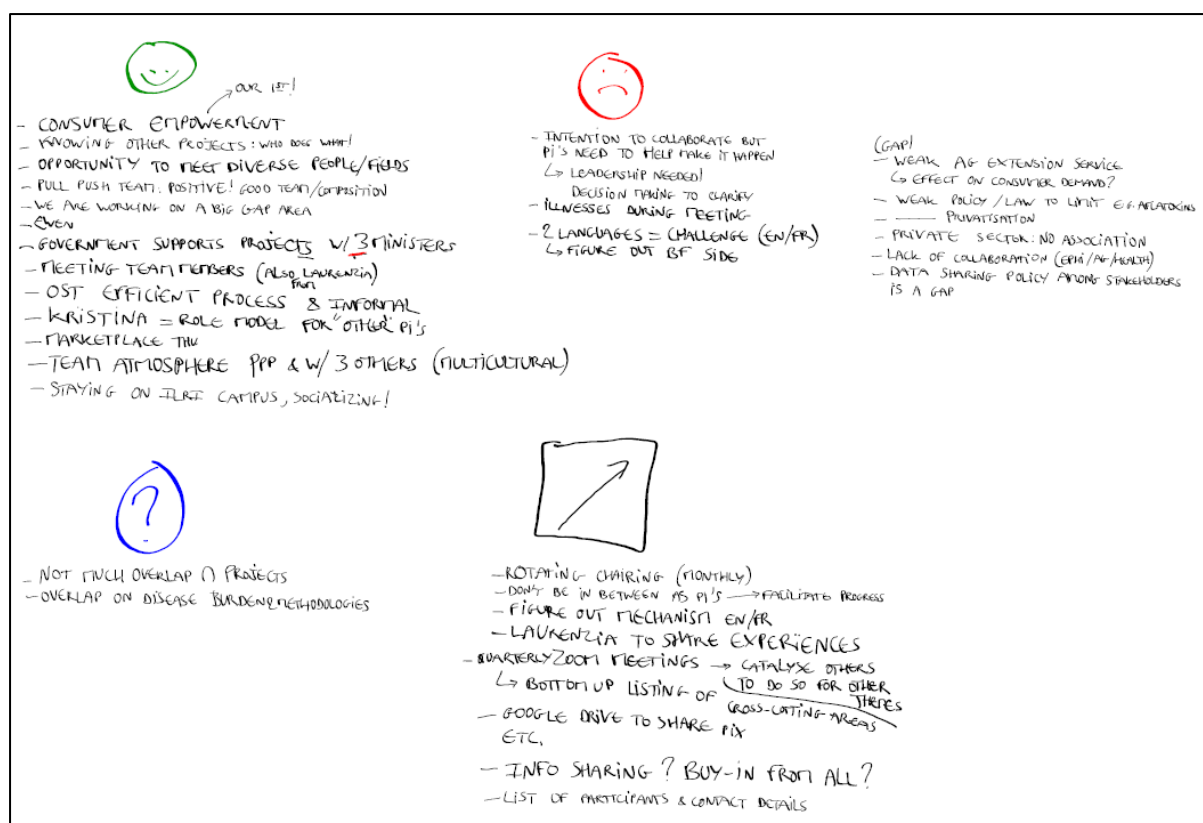 OUR 1ST!
- CONSUMER EMPOWERMENT
- KNOWING OTHER PROJECTS: WHO DOES WHAT!
- OPPORTUNITY TO MEET DIVERSE PEOPLE/FIELDS
- PULL PUSH TEAM: POSITIVE! GOOD TEAM/COMPOSITION
- WE ARE WORKING ON A BIG GAP AREA
- EVEN
- GOVERNMENT SUPPORTS PROJECTS W/ 3 MINISTERS
- MEETING TEAM MEMBERS (ALSO LAURENZIA)
FROM
- OST EFFICIENT PROCESS & INFORMAL
- KRISTINA = ROLE MODEL FOR "OTHER" PI'S
- MARKETPLACE THU
- TEAM ATMOSPHERE PPP & W/ 3 OTHERS (MULTICULTURAL)
- STAYING ON ILRI CAMPUS, SOCIALIZING!
- INTENTION TO COLLABORATE BUT
PI'S NEED TO HELP MAKE IT HAPPEN
↳ LEADERSHIP NEEDED!
DECISION MAKING TO CLARIFY
- ILLNESSES DURING MEETING
- 2 LANGUAGES = CHALLENGE (EN/FR)
↳ FIGURE OUT BF SIDE
(GAP!
- WEAK AG EXTENSION SERVICE
↳ EFFECT ON CONSUMER DEMAND?
- WEAK POLICY/LAW TO LIMIT E.G. AFLATOXINS
- —— PRIVATISATION
- PRIVATE SECTOR: NO ASSOCIATION
- LACK OF COLLABORATION (EPID/AG/HEALTH)
- DATA SHARING POLICY AMONG STAKEHOLDERS
IS A GAP
?
- NOT MUCH OVERLAP ∩ PROJECTS
- OVERLAP ON DISEASE BURDEN & METHODOLOGIES
- ROTATING CHAIRING (MONTHLY)
- DON'T BE IN BETWEEN AS PI'S → FACILITATE PROGRESS
- FIGURE OUT MECHANISM EN/FR
- LAURENZIA TO SHARE EXPERIENCES
- QUARTERLY ZOOM MEETINGS → CATALYSE OTHERS
TO DO SO FOR OTHER
THEMES
↳ BOTTOM UP LISTING OF CROSS-CUTTING AREAS
- GOOGLE DRIVE TO SHARE PIX
ETC.
- INFO SHARING? BUY-IN FROM ALL?
- LIST OF PARTICIPANTS & CONTACT DETAILS